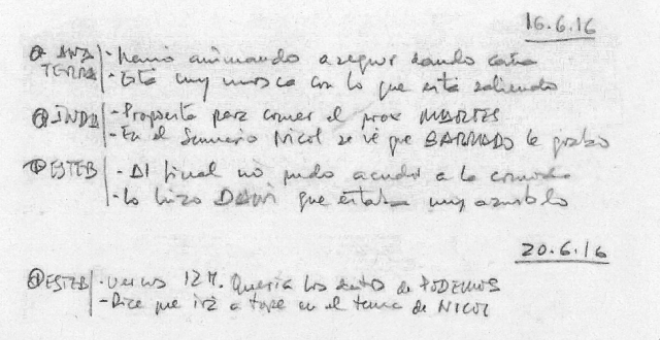 16.6.16
ANA TERRA - Llamó animando a seguir dando caña
- Está muy mosca con lo que está saliendo
INDA - Propuesta para comer el prox MARTES
- En el Sumario Nicol se ve que BARRADO le grabó
ESTEB - Al final no pudo acudir a la comida
- Lo hizo que estaba muy amable
20.6.16
ESTEB - vernos 12 H. Quería los datos de PODEMOS
- Dice que irá a tope en el tema de NICOL